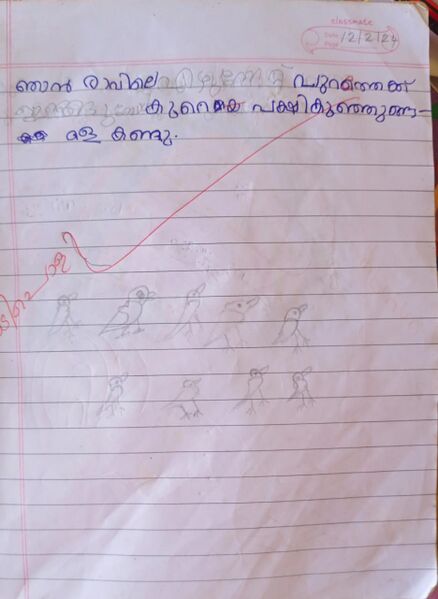 classmate
Date 12/2/24
Page
ഞാൻ രാവിലെ എഴുന്നേറ്റ് പുറത്തേക്ക്
കുറെ പക്ഷികുഞ്ഞുങ്ങ-
ളെ കണ്ടു.